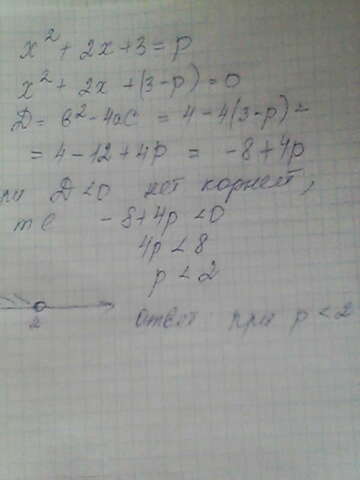 x² + 2x + 3 = p
x² + 2x + (3 - p) = 0
D = b² - 4ac = 4 - 4(3 - p) =
= 4 - 12 + 4p = -8 + 4p
ри D < 0 нет корней,
т е -8 + 4p < 0
4p < 8
p < 2
2
ответ при p < 2